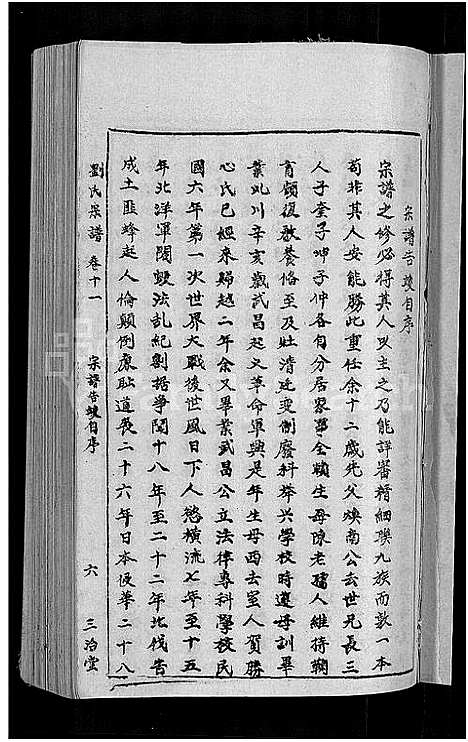 宗譜告竣自序
宗譜之修必得其人以主之乃能詳審精細聯九族而敦一本
苟非其人安能勝此重任余十二歲先父煥南公去世兄長三
人子奎子坤子仲各自分居家事全賴生母陳老孺人維持鞠
育顧復教養備至及壯清廷变制廢科举兴學校時遵母訓畢
業虬川辛亥歲武昌起义革命軍興是年生母西去室人賀勝
心氏已經來歸越二年余又畢業武昌公立法律專科學校民
國六年第一次世界大戰後世風日下人慾橫流七年至十五
年北洋軍閥毁法乱紀割据爭閧十八年至二十二年北伐告
成土匪蜂起人倫顛倒廉耻道喪二十六年日本侵華二十八
劉氏宗譜 卷十一 宗譜告竣自序 六 三治堂